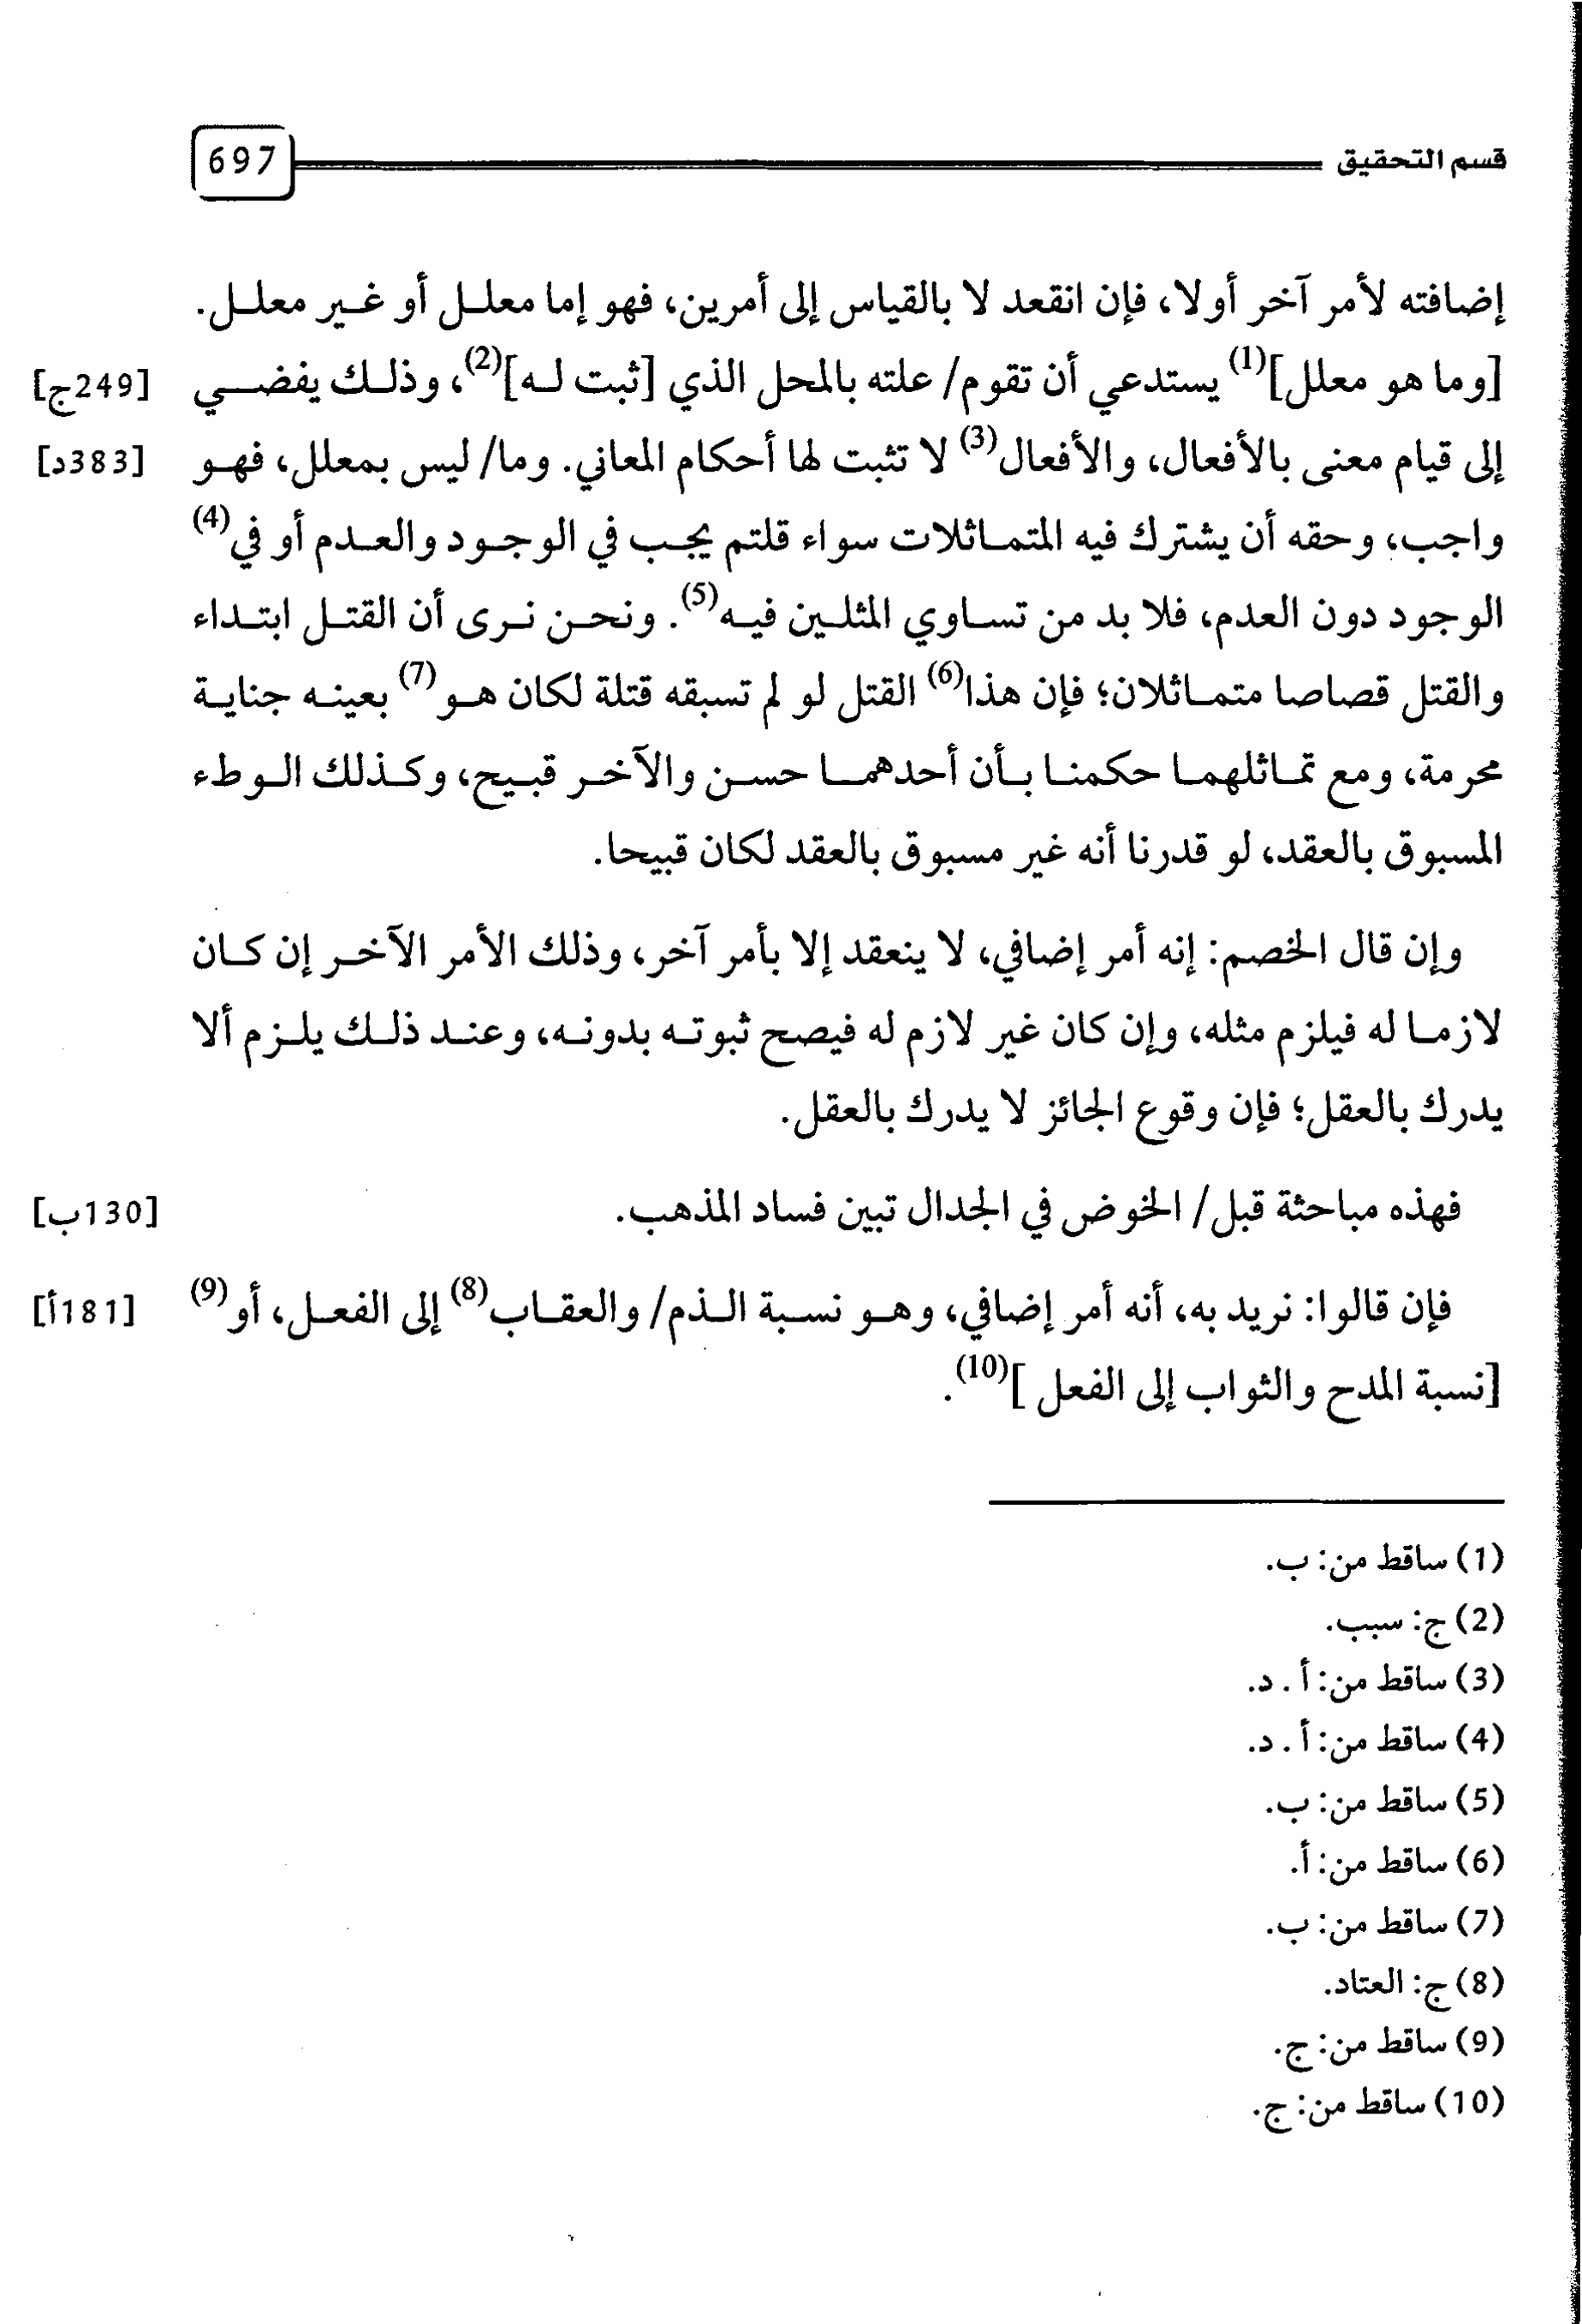 قسم التحقيق 697
إضافته لأمر آخر أو لا، فإن انقعد لا بالقياس إلى أمرين، فهو إما معلل أو غير معلل.
[وما هو معلل](1) يستدعي أن تقوم/ علته بالمحل الذي [ثبت له](2)، وذلك يفضي [249ج]
إلى قيام معنى بالأفعال، والأفعال(3) لا تثبت لها أحكام المعاني. وما/ ليس بمعلل، فهو [383د]
واجب، وحقه أن يشترك فيه المتماثلات سواء قلتم يجب في الوجود والعدم أو في(4)
الوجود دون العدم، فلا بد من تساوي المثلين فيه(5). ونحن نرى أن القتل ابتداء
والقتل قصاصا متماثلان؛ فإن هذا(6) القتل لو لم تسبقه قتلة لكان هو(7) بعينه جناية
محرمة، ومع تماثلهما حكمنا بأن أحدهما حسن والآخر قبيح، وكذلك الوطء
المسبوق بالعقد، لو قدرنا أنه غير مسبوق بالعقد لكان قبيحا.
وإن قال الخصم: إنه أمر إضافي، لا ينعقد إلا بأمر آخر، وذلك الأمر الآخر إن كان
لازما له فيلزم مثله، وإن كان غير لازم له فيصح ثبوته بدونه، وعند ذلك يلزم ألا
يدرك بالعقل؛ فإن وقوع الجائز لا يدرك بالعقل.
فهذه مباحثة قبل/ الخوض في الجدال تبين فساد المذهب. [130ب]
فإن قالوا: نريد به، أنه أمر إضافي، وهو نسبة الذم/ والعقاب(8) إلى الفعل، أو(9) [181أ]
[نسبة المدح والثواب إلى الفعل ](10).
(1) ساقط من: ب.
(2) ج: سبب.
(3) ساقط من: أ . د.
(4) ساقط من: أ . د.
(5) ساقط من: ب.
(6) ساقط من: أ.
(7) ساقط من: ب.
(8) ج: العتاد.
(9) ساقط من: ج.
(10) ساقط من: ج.